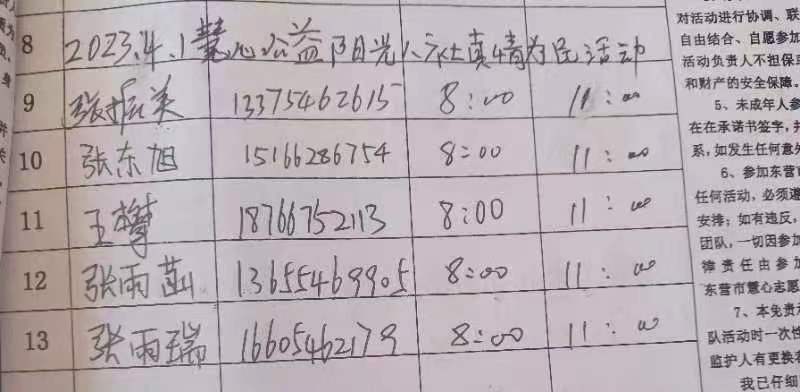 8 2023.4.1慧心公益阳光人社真情为民活动
9 张振美 13375462615 8:00 11:00
10 张东旭 15166286754 8:00 11:00
11 王攀 18766752113 8:00 11:00
12 张雨菡 13655469905 8:00 11:00
13 张雨瑞 16605462179 8:00 11:00
对活动进行协调、联
自由结合、自愿参加
活动负责人不担保
和财产的安全保障。
5、未成年人参
在在承诺书签字,
系,如发生任何意外
6、参加东营市
任何活动,必须遵
安排;如有违反,
团队,一切因参加
律责任由参加
东营市慧心志愿
7、本免责
队活动时一次性
监护人有更换
我已仔细